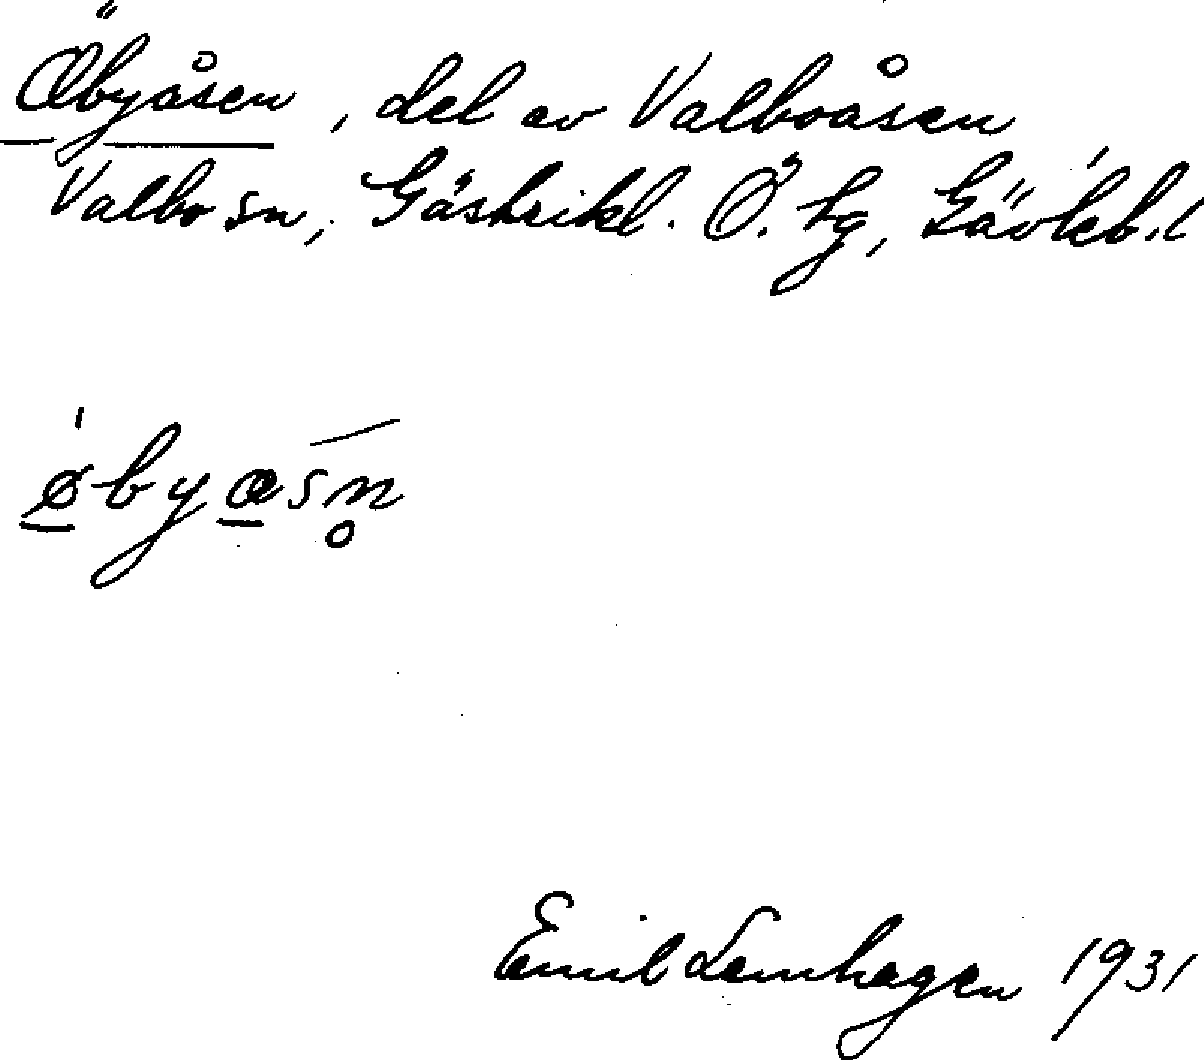 Öbyåsen, del av Valboåsen
Valbo sn, Gästrikl. Ö. tg, Gävleb. l
ǿbyɑsn̥
Emil Lemhagen 1931